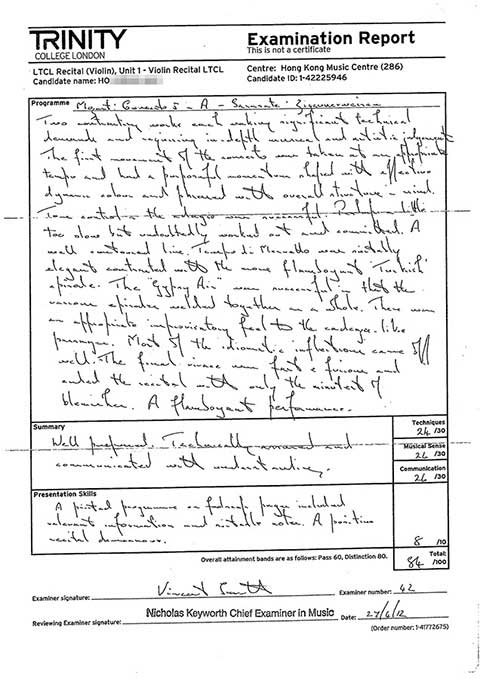 TRINITY
COLLEGE LONDON
Examination Report
This is not a certificate
LTCL Recital (Violin), Unit 1 - Violin Recital LTCL
Candidate name: HO
Centre: Hong Kong Music Centre (286)
Candidate ID: 1-42225946
Programme Mozart: Concerto 5 - A - Sarasate: Zigeunerweisen
Two contrasting works each making significant technical
demands and requiring in-depth musical and artistic judgement.
The first movement of the concerto was taken at an appropriate
tempo and had a purposeful momentum shaped with effective
dynamic colour and phrased with overall structure in mind.
Tone control in the adagio was successful. Perhaps a little
too slow but undoubtedly worked out and committed. A
well sustained line. Tempo di Menuetto was suitably
elegant contrasted with the more flamboyant 'Turkish'
episode. The "Gypsy Airs" were successful in that the
various episodes welded together as a whole. There was
an appropriate improvisatory feel to the cadenza-like
passages. Most of the idiomatic inflections came off
well. The final vivace was fast & furious and
ended the recital with only the minutest of
blemishes. A flamboyant performance.
Summary
Well prepared. Technically assured and
communicated with understanding.
Techniques
24 /30
Musical Sense
26 /30
Communication
26 /30
Presentation Skills
A printed programme on folded paper included
relevant information and suitable notes. A positive
recital demeanour.
8 /10
Overall attainment bands are as follows: Pass 60, Distinction 80.
Total:
84 /100
Examiner signature: Vincent Smith
Examiner number: 42
Nicholas Keyworth Chief Examiner in Music
Reviewing Examiner signature:
Date: 27/6/12
(Order number: 1-41772675)